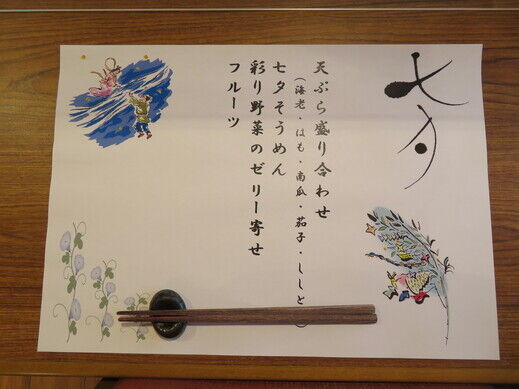 七夕
天ぷら盛り合わせ
(海老・はも・南瓜・茄子・ししと
七夕そうめん
彩り野菜のゼリー寄せ
フルーツ